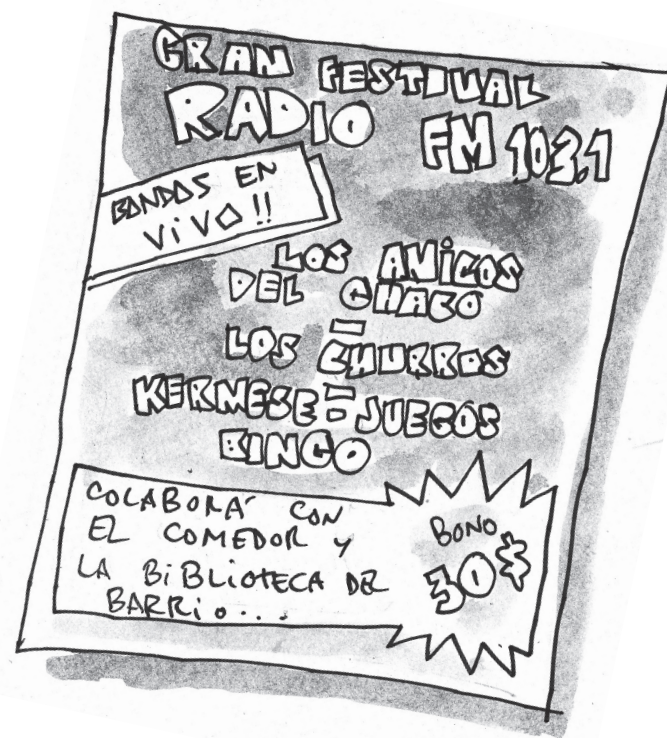 GRAN FESTIVAL
RADIO FM 103.1
BANDAS EN
ViVO!!
LOS AMiGOS
DEL CHACO
-
LOS CHURROS
-
KERMESE - JUEGOS
BINGO
COLABORÁ CON
EL COMEDOR y
LA BiBLiOTECA DEL
BARRiO...
BONO
30$